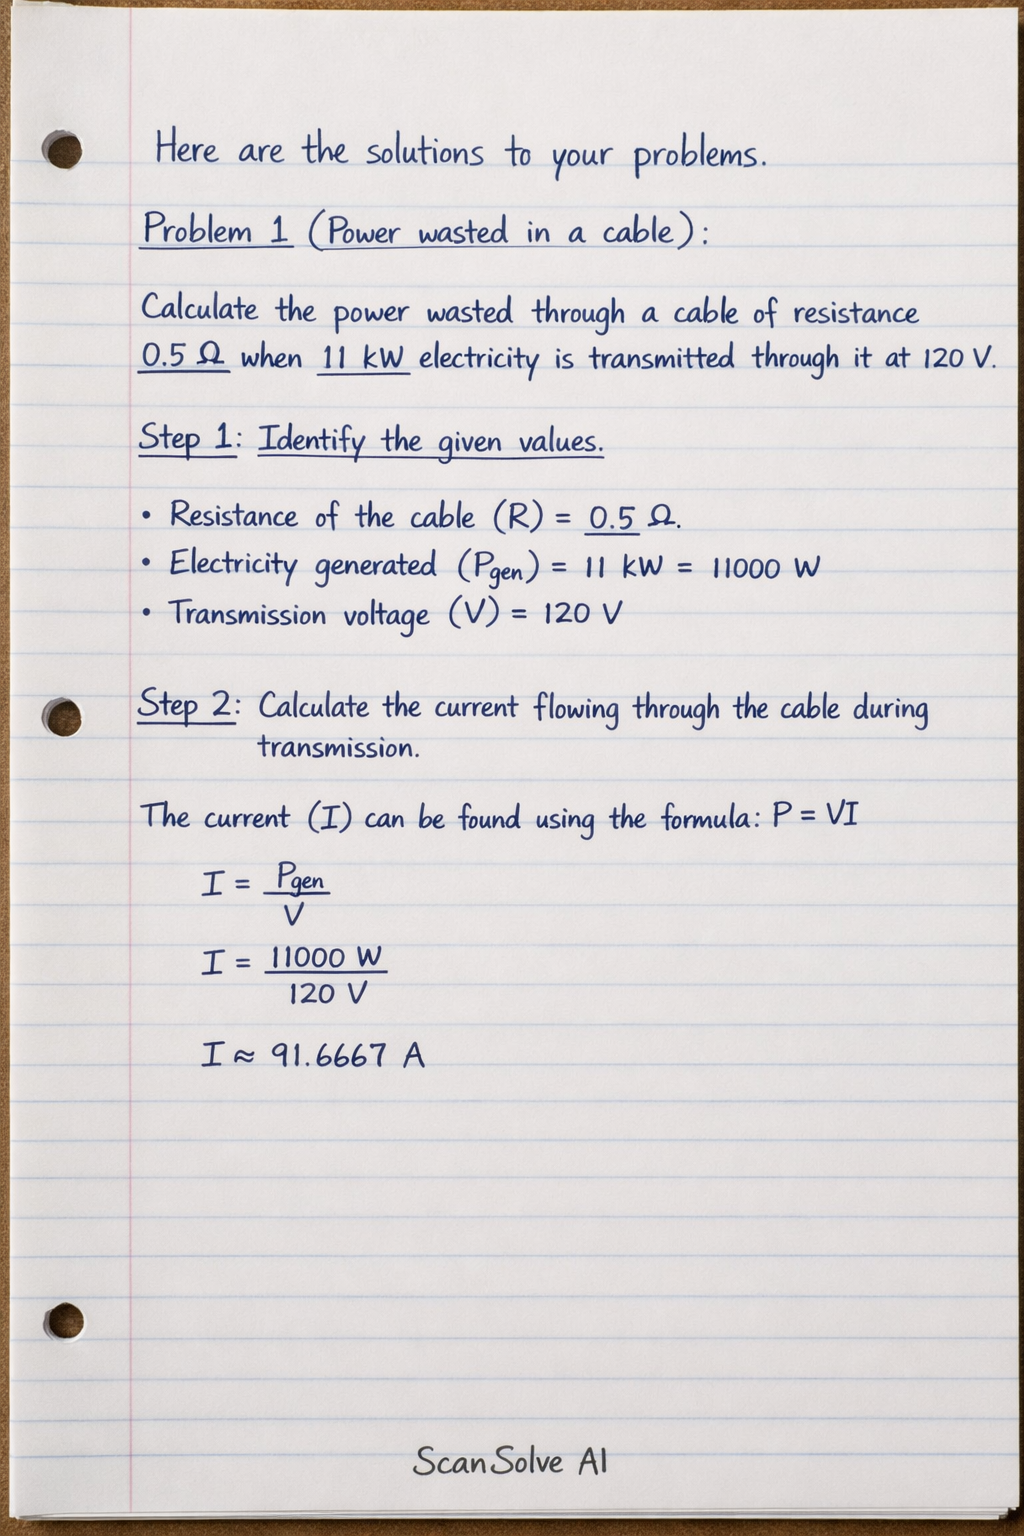 Here are the solutions to your problems.
Problem 1 (Power wasted in a cable):
Calculate the power wasted through a cable of resistance
0.5 Ω when 11 kW electricity is transmitted through it at 120 V.
Step 1: Identify the given values.
• Resistance of the cable (R) = 0.5 Ω.
• Electricity generated (Pgen) = 11 kW = 11000 W
• Transmission voltage (V) = 120 V
Step 2: Calculate the current flowing through the cable during
transmission.
The current (I) can be found using the formula: P = VI
I = Pgen / V
I = 11000 W / 120 V
I ≈ 91.6667 A
ScanSolve AI